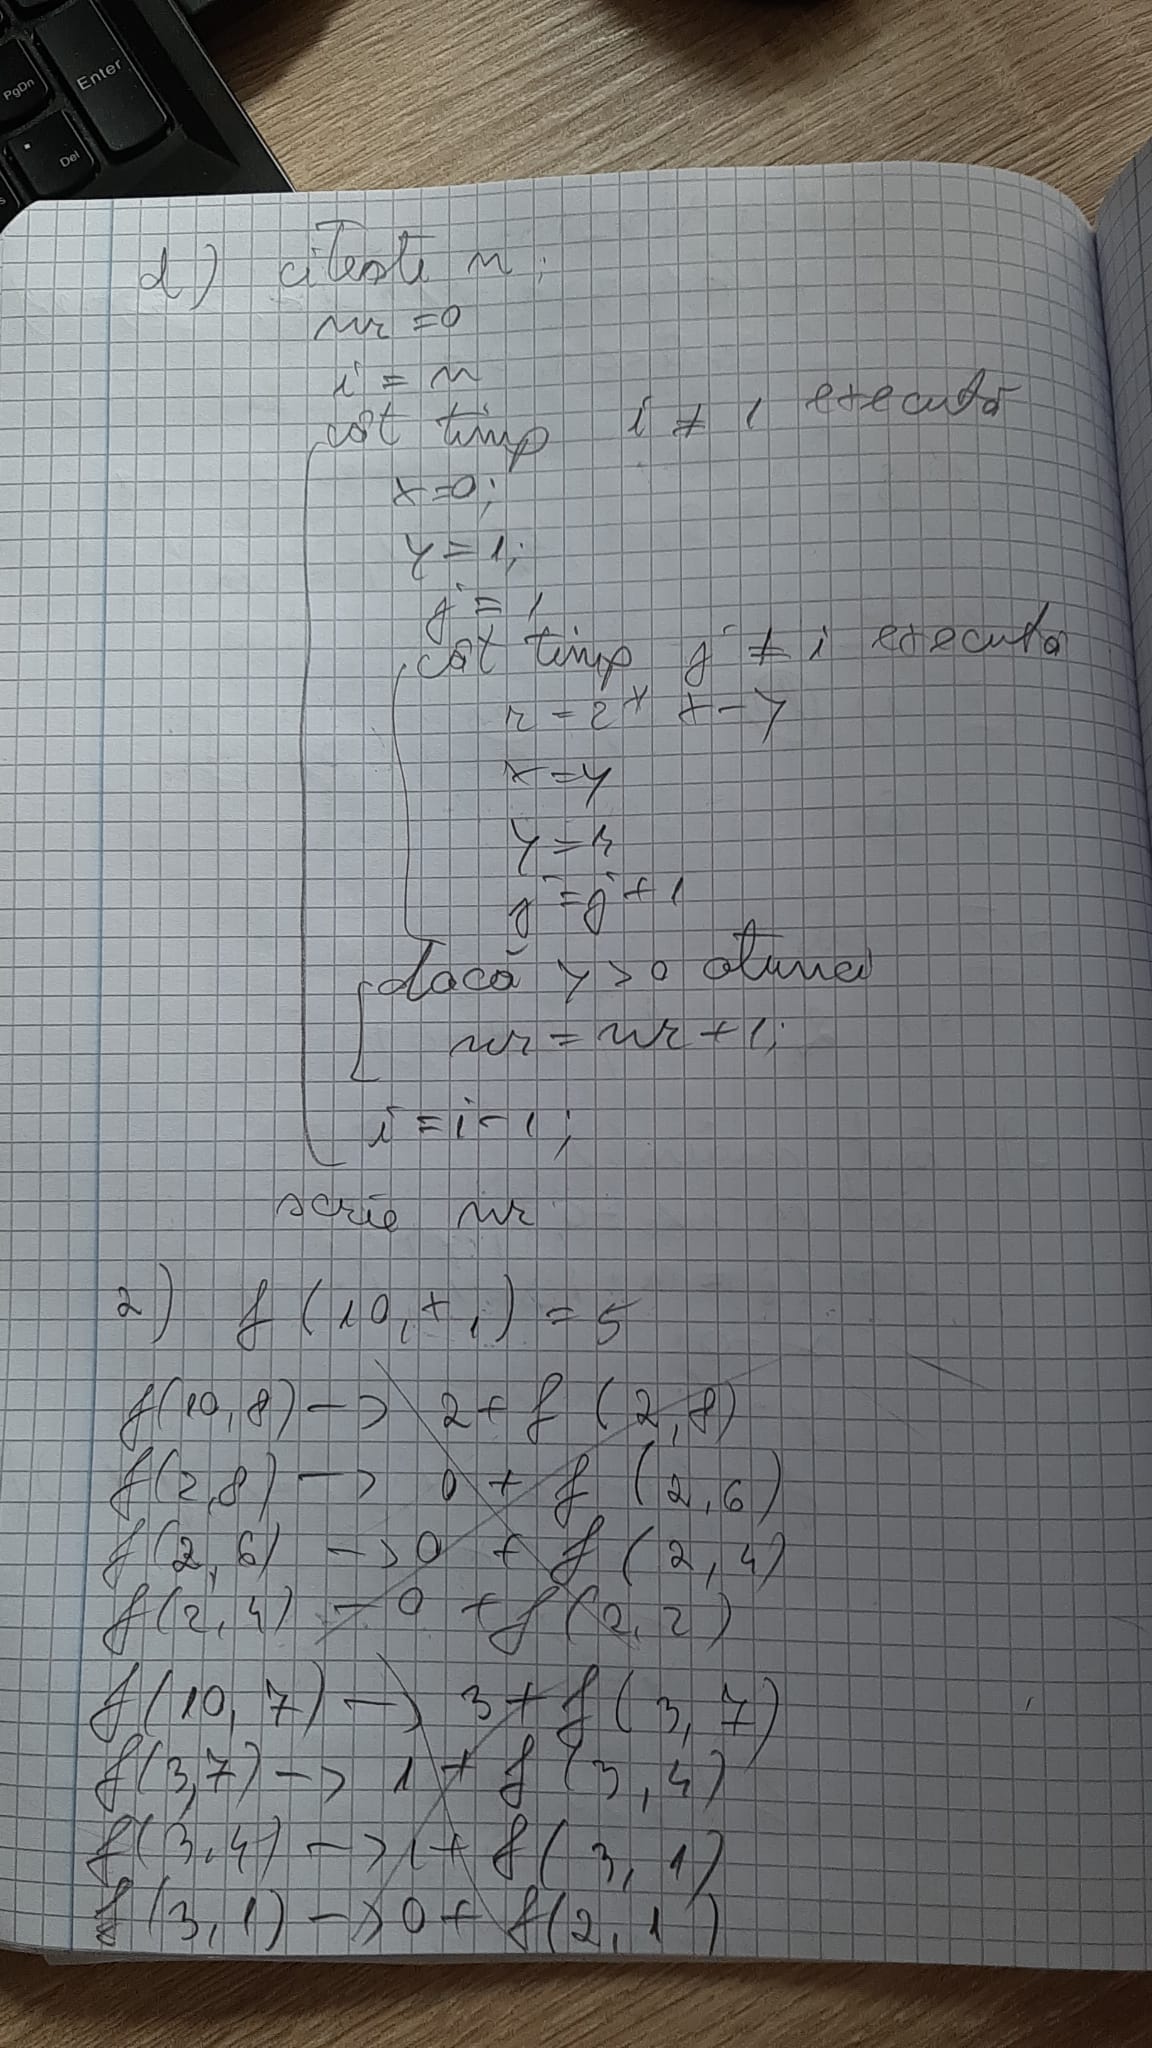 PgDn
Enter
Del
d) citeste n;
nr = 0
i = n
cât timp i ≠ 1 executa
x=0;
y=1;
j=1
cât timp j ≠ i executa
r = 2* x-y
x=y
y=r
j=j+1
dacă y>0 atunci
nr = nr+1;
i=i-1;
scrie nr
2) f(10,x,) = 5
f(10,8) -> 2+f(2,8)
f(2,8) -> 0 + f(2,6)
f(2,6) -> 0 + f(2,4)
f(2,4) - 0 + f(2,2)
f(10,7) -> 3+f(3,7)
f(3,7) -> 1 + f(3,4)
f(3,4) -> 1+ f(3,1)
f(3,1) -> 0 + f(2,1)